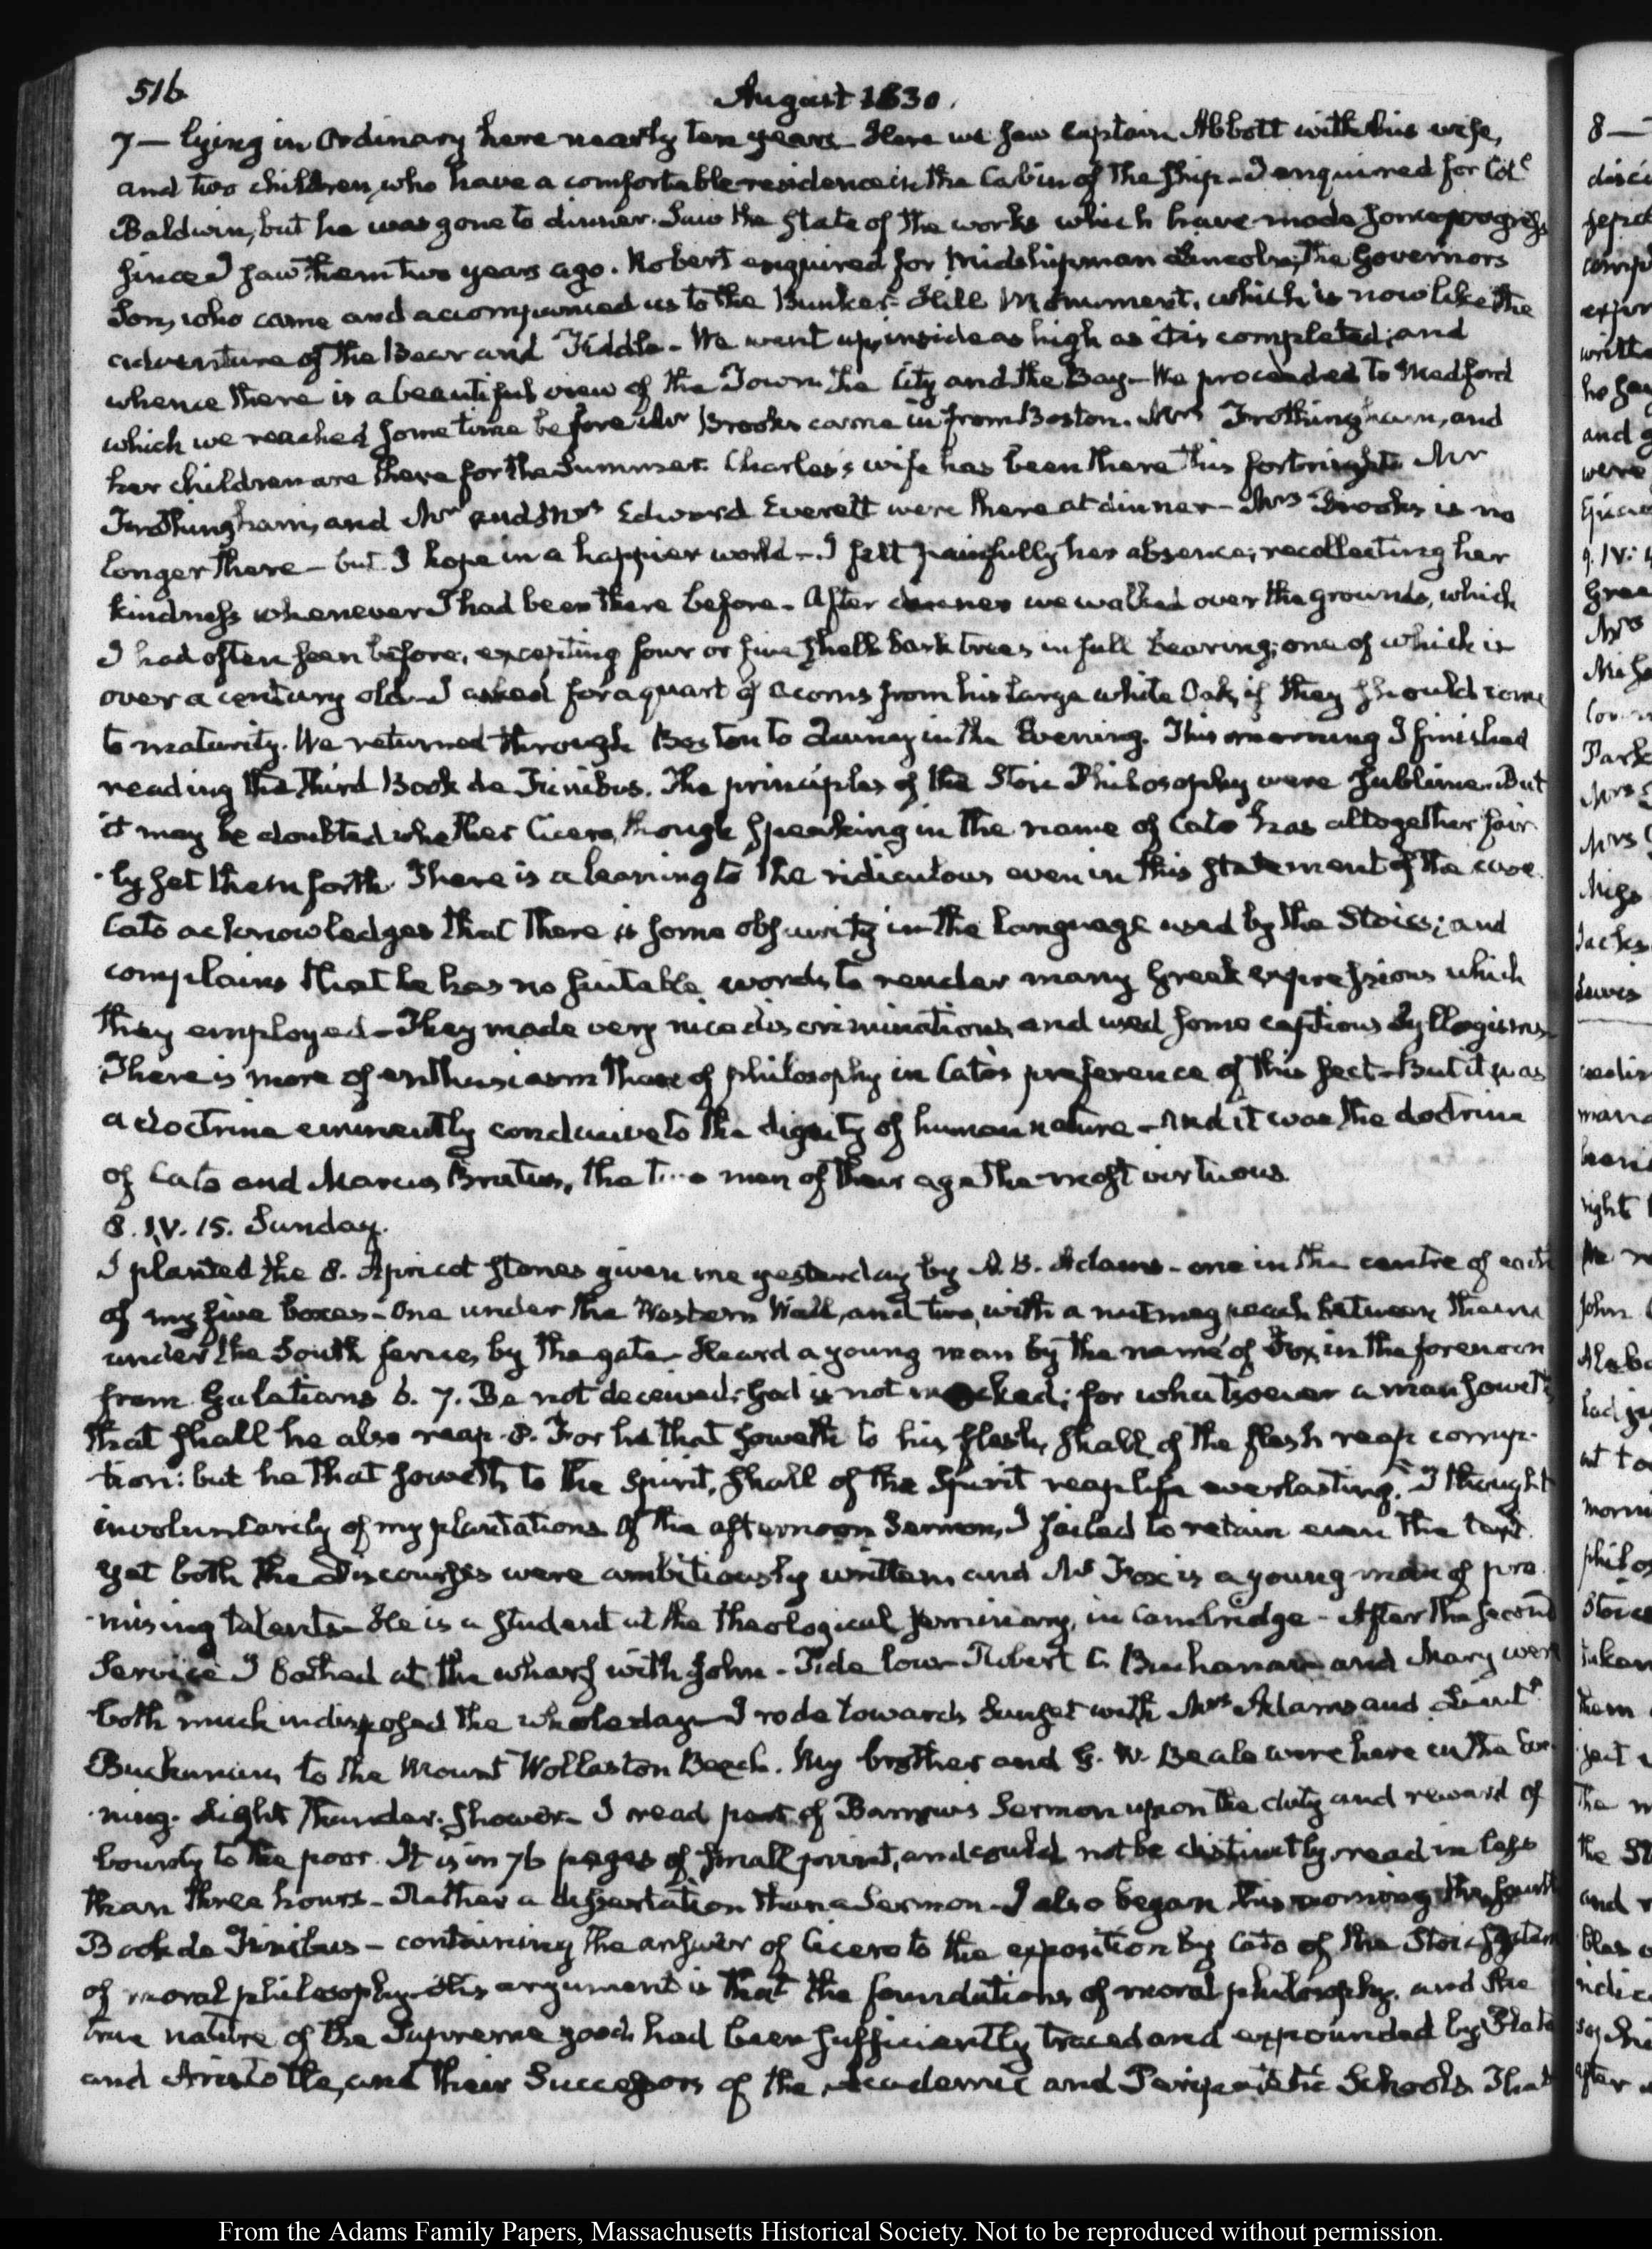 516
August 1830.
7 — lying in Ordinary here nearly ten years — Here we saw Captain Abbott with his wife,
and two children, who have a comfortable residence in the Cabin of the Ship — I enquired for Col.e
Baldwin, but he was gone to dinner. Saw the state of the works which have made some progress
since I saw them two years ago. Robert enquired for Midshipman Lincoln, the Governors
Son, who came and accompanied us to the Bunker-Hill Monument, which is now like the
adventure of the Bear and Fiddle — We went up, inside as high as it is completed; and
whence there is a beautiful view of the Town the City and the Bay — We proceeded to Medford
which we reached some time before Mr Brooks came in from Boston. Mrs Frothingham, and
her children are there for the Summer. Charles's wife has been there this fortnight. Mr
Frothingham, and Mr and Mrs Edward Everett were there at dinner — Mrs Brooks is no
longer there — but I hope in a happier world — I felt painfully her absence; recollecting her
kindness whenever I had been there before — After dinner we walked over the grounds, which
I had often seen before, excepting four or five shell bark trees in full bearing; one of which is
over a century old — I asked for a quart of acorns from his large white Oak, if they should come
to maturity. We returned through Boston to Quincy in the Evening. This morning I finished
reading the Third Book de Finibus. The principles of the Stoic Philosophy were sublime. But
it may be doubted whether Cicero, though speaking in the name of Cato has altogether fair-
-ly set them forth. There is a leaning to the ridiculous even in this statement of the case.
Cato acknowledges that there is some obscurity in the language used by the Stoics; and
complains that he has no suitable words to render many Greek expressions which
they employed — They made very nice discriminations, and used some captious Syllogisms —
There is more of enthusiasm than of philosophy in Cato's preference of this sect — But it was
a doctrine eminently conducive to the dignity of human nature — And it was the doctrine
of Cato and Marcus Brutus, the two men of their age the most virtuous.
8. IV. 15. Sunday.
I planted the 8. Apricot stones given me yesterday by A. B. Adams — one in the centre of each
of my five boxes — One under the Western Wall, and two, with a nutmeg peach between them
under the South fence, by the gate — Heard a young man by the name of Fox, in the forenoon
from Galatians 6. 7. Be not deceived; God is not mocked; for whatsoever a man soweth
that shall he also reap. 8. For he that soweth to his flesh, shall of the flesh reap corrup-
-tion: but he that soweth to the Spirit, shall of the Spirit reap life everlasting. I thought
involuntarily of my plantations. Of the afternoon Sermon, I failed to retain even the text.
yet both the Discourses were ambitiously written, and Mr Fox is a young man of pro-
-mising talents — He is a student at the theological seminary, in Cambridge — After the second
Service I bathed at the wharf with John — Tide low — Robert C. Buchanan and Mary were
both much indisposed the whole day — I rode towards Sunset with Mrs Adams and Lieut.t
Buchanan, to the Mount Wollaston Beach. My brother and G. W. Beale were here in the Eve-
-ning. Light Thunder-shower — I read part of Barrow's Sermon upon the duty and reward of
bounty to the poor. It is in 76 pages of small print, and could not be distinctly read in less
than three hours — Rather a dissertation than a Sermon — I also began this morning the fourth
Book de Finibus — containing the answer of Cicero to the exposition by Cato of the Stoic system
of moral philosophy — His argument is that the foundations of moral philosophy, and the
true nature of the Supreme good had been sufficiently traced and expounded by Plato
and Aristotle, and their Successors of the Academic and Peripatetic Schools. That
From the Adams Family Papers, Massachusetts Historical Society. Not to be reproduced without permission.